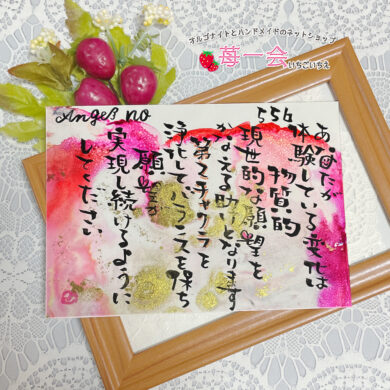 オルゴナイトとハンドメイドのネットショップ
苺一会 いちごいちえ
Angels no
556
あなたが
体験している変化は
物質的
現世的な願望を
かなえる助けとなります
第2チャクラを
浄化してバランスを保ち
願望が
実現し続けるように
してください